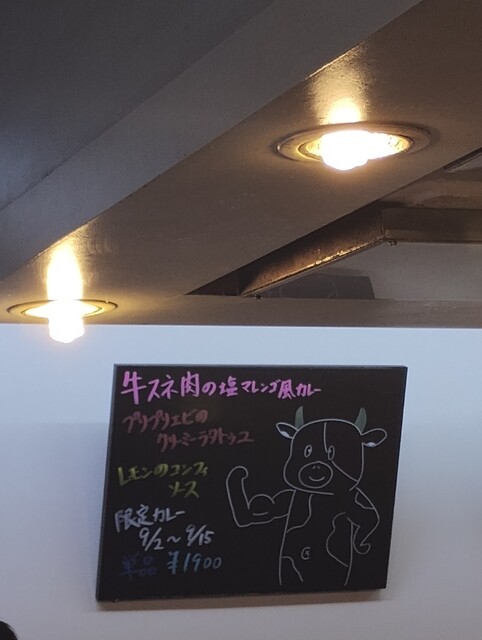 牛スネ肉の塩マレンゴ風カレー
プリプリエビの
クリーミーラタトゥユ
レモンのコンフィ
ソース
限定カレー
9/2〜9/15
単品 ¥1900